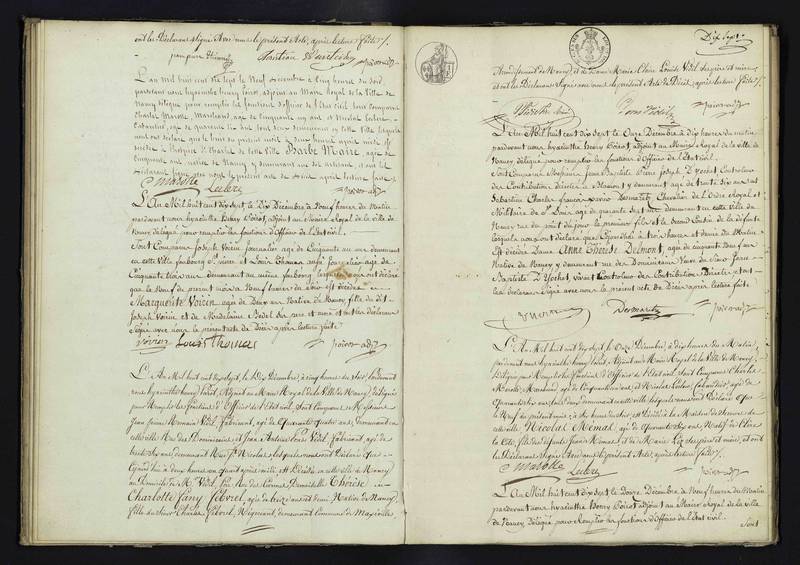 ont les Déclarans Signé Avec nous le présent Acte, après lecture faite /.
L'an mil huit cent dix sept le Neuf Décembre à cinq heures du soir
pardevant nous hyacinthe henry Poirot, adjoint au Maire Royal de la Ville de
Nancy délégué pour remplir les fonctions d'officier de l'Etat civil, sont comparus
Charles Marotte, Marchand, agé de cinquante un ans et Nicolas Leclerc
Cabaretier, agé de quarante six ans tous deux demeurant en cette Ville lesquels
nous ont déclaré que
à l'hospice St Charles de cette Ville Barbe Maire, agée de
cinquante ans native de Nancy y demeurant
Déclarans Signé avec nous le présent acte de Décès après lecture faite /.
Marotte Leclerc poirot adjt
L'An Mil huit cent dix sept le Dix Décembre à Neuf heures du Matin
pardevant nous hyacinthe henry Poirot, adjoint au Maire Royal de la ville de
Nancy, délégué pour remplir les fonctions d'Officier de l'Etat civil.
Sont Comparus Joseph Voirin journalier agé de Cinquante ans demeurant
en cette Ville faubourg St pierre et Louis Thomas aussi journalier agé de
Cinquante trois ans demeurant au même faubourg lesquels nous ont déclaré
que le Neuf du présent mois à Neuf heures du soir est décédée
Marguerite Voirin agée de Deux ans Native de Nancy fille du dit
Joseph Voirin et de Madelaine Bedel Ses père et mère et ont les déclarans
Signé avec nous le présent acte de Décès après lecture faite
Voirin Louis Thomas poirot adjt
L'An Mil huit cent dix sept, le dix Décembre, à cinq heures du Soir, Pardevant
nous hyacinthe henry Poirot, Adjoint au Maire Royal de la Ville de Nancy, délégué
pour Remplir les fonctions d'Officier de l'Etat civil, Sont Comparus les Messieurs
Jean Vidil Fabricant, agé de Quarante quatre ans, Demeurant en
cette ville Rue des Dominicains et Jean Antoine Louis Vidil Fabricant, agé de
trente six ans, demeurant Rue St Nicolas, lesquels nous ont Déclaré que
aujourd'hui à deux heures un quart après midi, est Décédée en cette ville de Nancy
au Domicile de Mr Vidil, Demoiselle Thérèse
Charlotte Fany Febvrel, agée de treize ans et demi, Native de Nancy,
fille du Sieur Charles Febvrel, Négociant, demeurant Commune de Maxéville,
Dix Sept
Arrondissement de Nancy, et de Dame Marie Claire Louise Vidil, Ses père et mère,
et ont les Déclarans Signé avec nous le présent Acte de Décès, après lecture faite /.
poirot adjt
L'An Mil huit cent dix sept le Onze Décembre à dix heures du Matin
pardevant nous hyacinthe henry Poirot adjoint au Maire Royal de la Ville de
Nancy, délégué pour remplir les fonctions d'Officier de l'Etat civil.
Sont Comparus Messieurs Jean Baptiste Pierre Joseph D'yochet Controleur
des Contributions directes à Nancy y demeurant agé de trente six ans et
Sébastien Charles françois Desmaretz Chevalier de l'Ordre Royal et
Militaire de St Louis agé de quarante sept ans demeurant en cette Ville de
Nancy rue le premier fils et le second Cousin de la défunte
lesquels nous ont déclaré que Cejourdhui à trois heures et demie du Matin
Est décédée Dame Anne Thérèse Delmont, agée de cinquante Neuf ans
Native de Nancy y demeurant rue des Dominicains Veuve du Sieur Jean
Baptiste D'yochet, vivant Controleur des Contributions Directes et ont
les déclarans Signé avec nous le présent acte de Décès après lecture faite
Desmaretz poirot adjt
L'An Mil huit cent dix sept, le Onze Décembre, à dix heures du Matin,
pardevant nous hyacinthe henry Poirot, Adjoint au Maire Royal de la Ville de Nancy,
Délégué pour Remplir les fonctions d'Officier de l'Etat civil, Sont Comparus Charles
Marotte, Marchand, agé de Cinquante un ans, et Nicolas Leclerc, Cabaretier, agé de
Quarante six ans, tous deux demeurant en cette ville, lesquels nous ont Déclaré que
le Neuf du présent mois, à six heures du soir, est Décédé à la Maison de Secours de
cette ville, Nicolas Mémal, agé de Quarante Sept ans, Natif de
la Côte, fils des défunts Jean Mémal, et de Marie Ses père et mère, et ont
les Déclarans Signé Avec nous le présent Acte, après lecture faite /.
Marotte Leclerc poirot adjt
L'An Mil huit cent dix sept le Douze Décembre à Neuf heures du Matin
pardevant nous hyacinthe henry Poirot adjoint au Maire Royal de la Ville
de Nancy, délégué pour Remplir les fonctions d'Officier de l'Etat civil.
Sont